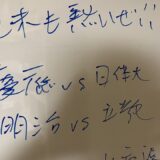 末も熱いぜ!!
慶應 vs 日体大
明治 vs 立教